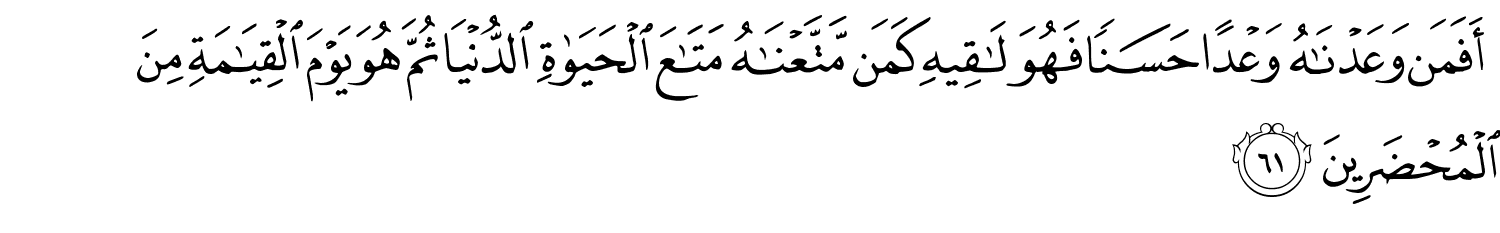 أَفَمَن وَعَدۡنَٰهُ وَعۡدًا حَسَنٗا فَهُوَ لَٰقِيهِ كَمَن مَّتَّعۡنَٰهُ مَتَٰعَ ٱلۡحَيَوٰةِ ٱلدُّنۡيَا ثُمَّ هُوَ يَوۡمَ ٱلۡقِيَٰمَةِ مِنَ
ٱلۡمُحۡضَرِينَ ٦١